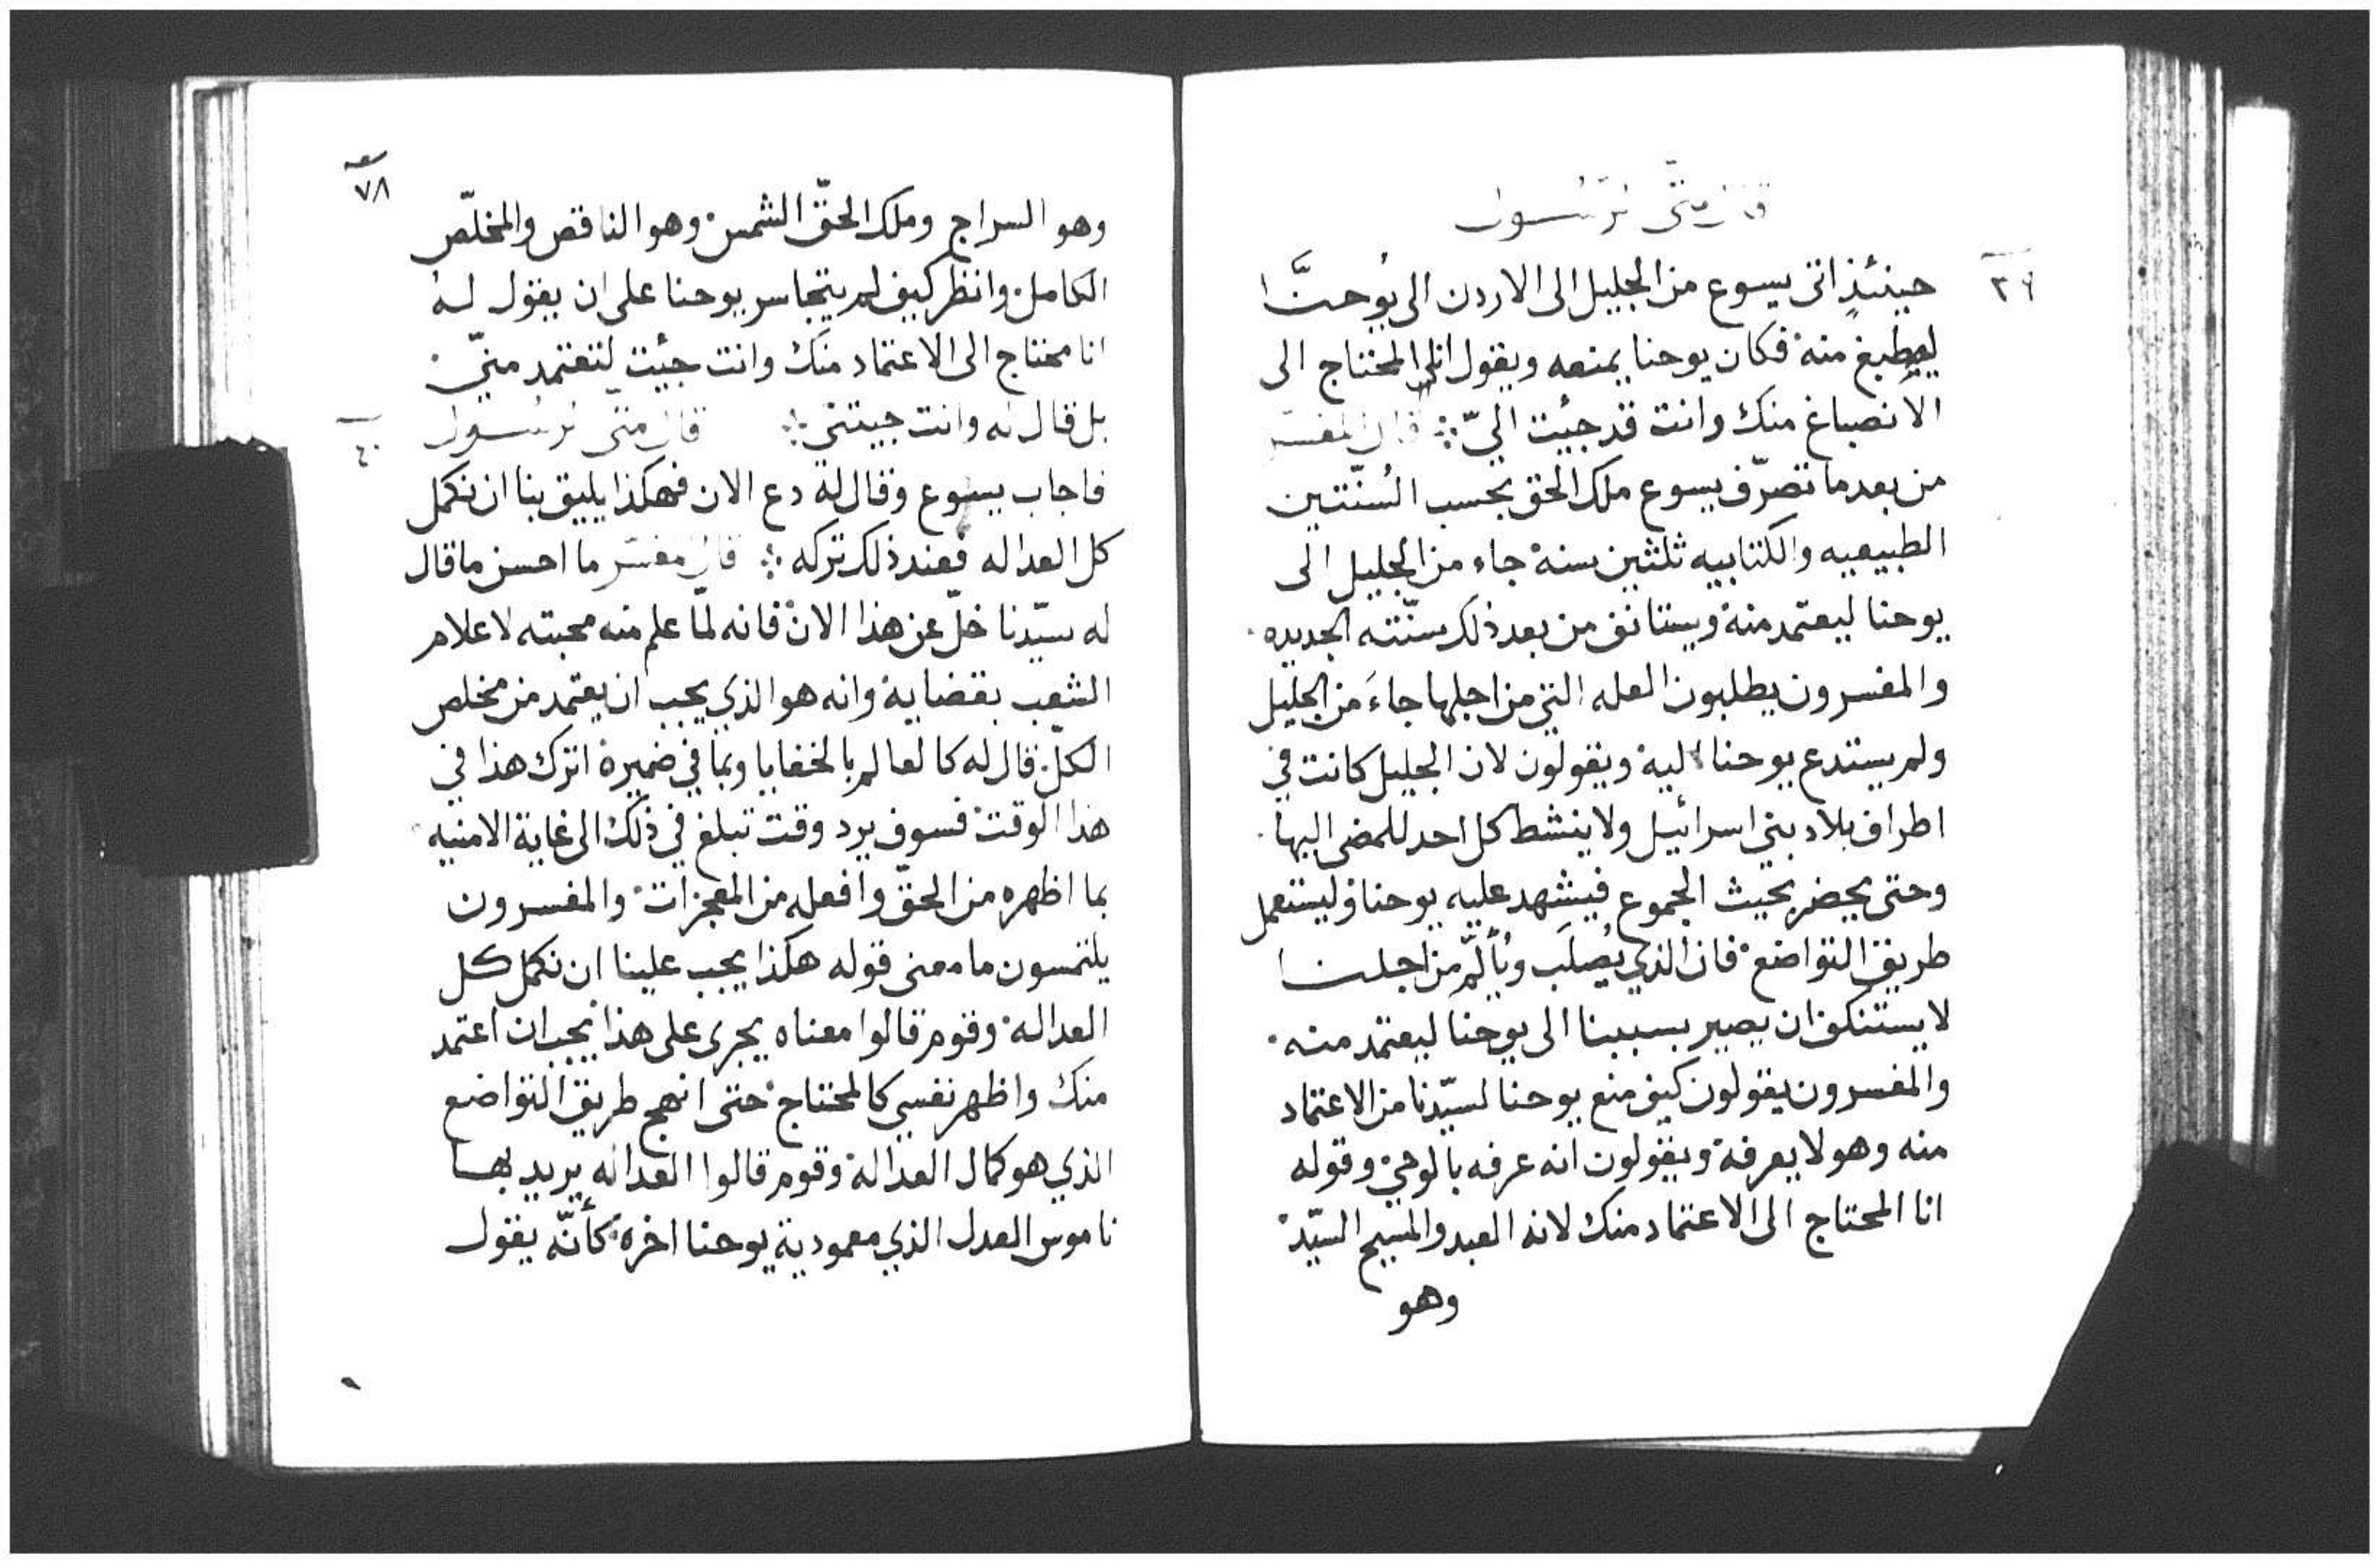 قال متّى الرّسول
٣٩
حينئذٍ اتى يسوع من الجليل الى الاردن الى يُوحنَّا
ليصطبغ منه فكان يوحنا يمنعه ويقول انا المحتاج الى
الانصباغ منك وانت قد جيئت اليّ ؞ قال المفسر
من بعد ما تصرّف يسوع ملك الحق بحسب السُنّتين
الطبيعيه والكتابيه ثلثين سنة جاء من الجليل الى
يوحنا ليعتمد منه ويستانف من بعد ذلك سنّته الجديده
والمفسرون يطلبون العله التي من اجلها جاءَ من الجليل
ولم يستدع يوحنا اليه ويقولون لان الجليل كانت في
اطراف بلاد بني اسرائيل ولا ينشط كل احد للمضى اليها
وحتى يحضر بحيث الجموع فيشهد عليه يوحنا وليستعمل
طريق التواضع فان الذي يُصلَب ويُألَّم من اجلنا
لا يستنكف ان يصير بسببنا الى يوحنا ليعتمد منه
والمفسرون يقولون كيف منع يوحنا لسيّدنا من الاعتماد
منه وهو لا يعرفه ويقولون انه عرفه بالوحي وقوله
انا المحتاج الى الاعتماد منك لانه العبد والمسيح السيّد
وهو
٧٨
وهو السراج وملك الحقّ الشمس وهو الناقص والمخلّص
الكامل وانظر كيف لم يتجاسر يوحنا على ان يقول له
انا محتاج الى الاعتماد منك وانت جيئت لتعتمد منّي
بل قال له وانت جيتني ؞ قال متّى الرسول
٤٠
فاجاب يسوع وقال له دع الان فهكذا يليق بنا ان نكمل
كل العداله فعند ذلك تركه ؞ قال المفسّر ما احسن ما قال
له سيّدنا خلّ عن هذا الان فانه لمّا علم منه محبته لاعلام
الشعب بقضايه وانه هو الذي يجب ان يعتمد من مخلص
الكلّ قال له كالعالم بالخفايا وبما في ضميره اترك هذا في
هذا الوقت فسوف يرد وقت تبلغ في ذلك الى غاية الامنيه
بما اظهره من الحقّ وافعله من المعجزات والمفسرون
يلتمسون ما معنى قوله هكذا يجب علينا ان نكمل كل
العداله وقوم قالوا معناه يجرى على هذا يجب ان اعتمد
منك واظهر نفسي كالمحتاج حتى انهج طريق التواضع
الذي هو كمال العداله وقوم قالوا العداله يريد بها
ناموس العدل الذي معمودية يوحنا اخره كأنّه يقول